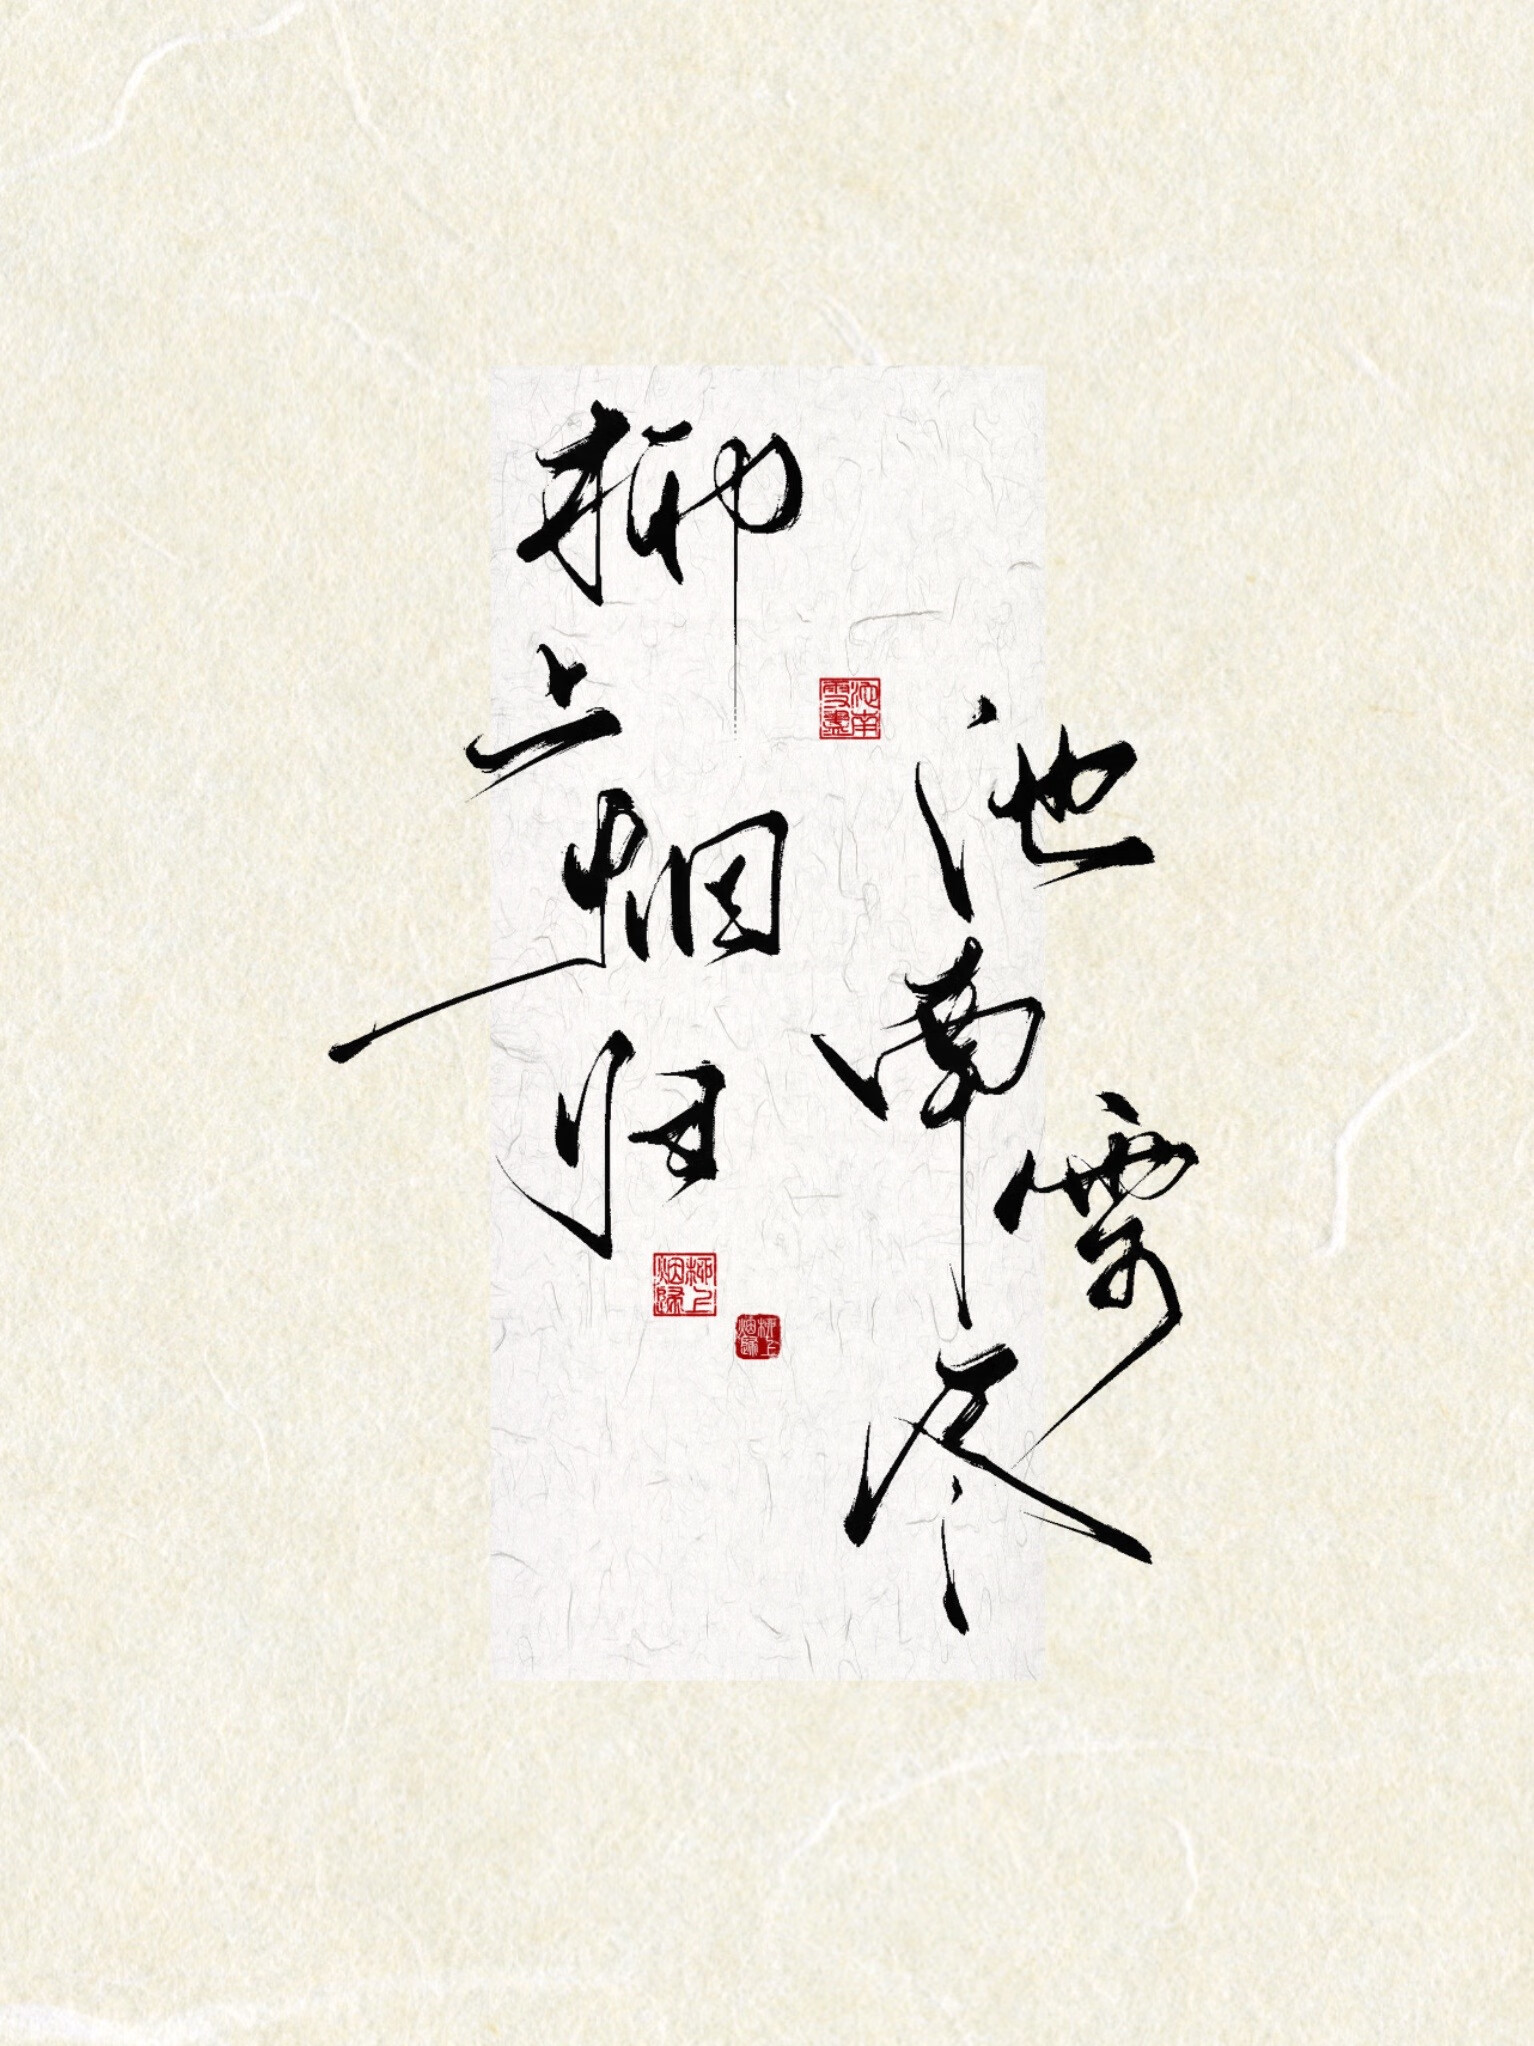 柳上烟归
池南雪尽
池南雪盡
柳上烟歸
柳上烟歸